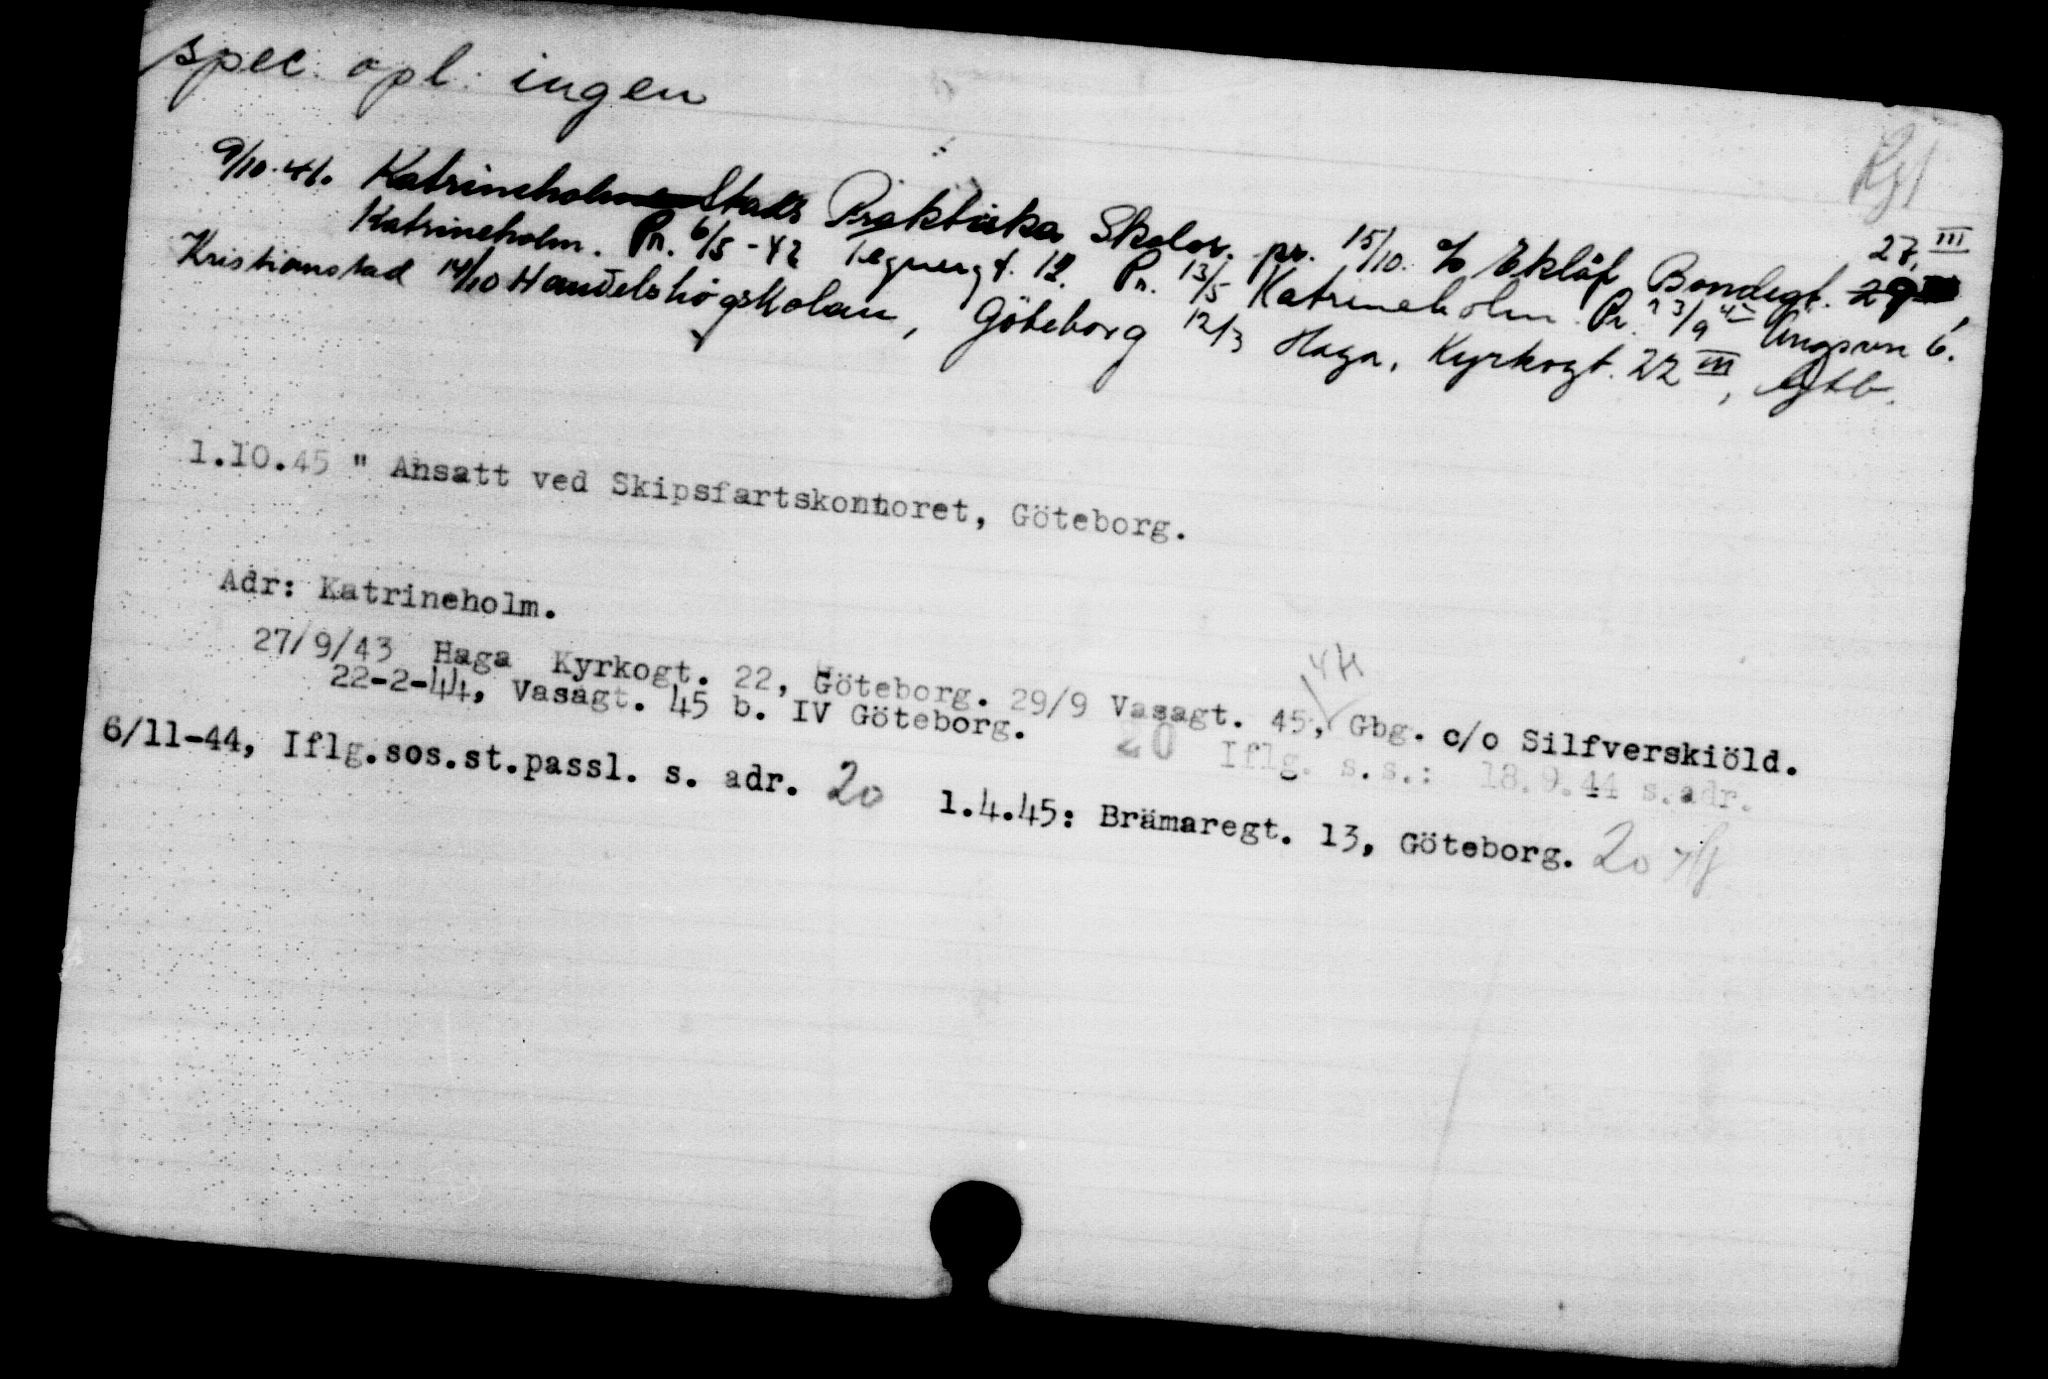 spec. opl. ingen
9/10.41. Katrineholms Stads Praktiska Skolor. pr. 15/10. c/o Eklöf Bondegt. 29 27, III,
Katrineholm. Pr. 6/5-42 Tegnergt. 12. Pr. 13/5 Katrineholm. Pr. 23/9 42 6.
Kristianstad 14/10 Handelshögskolan, Göteborg 12/3 Haga, Kyrkogt. 22 III, Gtb.
1.10.45 " Ansatt ved Skipsfartskontoret, Göteborg.
Adr: Katrineholm.
27/9/43 Haga Kyrkogt. 22, Göteborg. 29/9 Vasagt. 45, Gbg. c/o Silfverskiöld.
22-2-44, Vasagt. 45 b. IV Göteborg. 20 Iflg. s.s.: 18.9.44 s.adr.
6/11-44, Iflg.sos.st.passl. s. adr. 20 1.4.45: Brämaregt. 13, Göteborg. 20